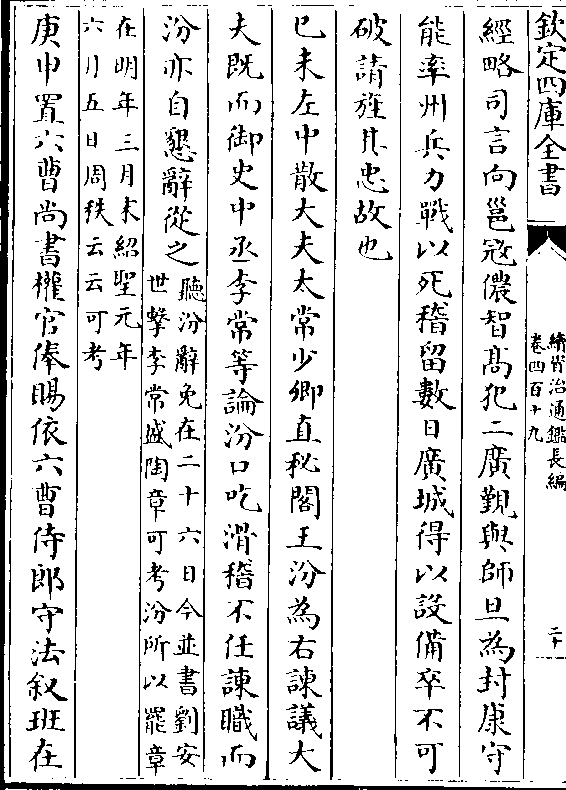 欽定四庫全書
續資治通鑑長編
卷四百十九
二十
經略司言向邕冦儂智髙犯二廣覲與師旦為封康守
能率州兵力戰以死稽留數日廣城得以設備卒不可
破請旌其忠故也
已未左中散大夫太常少卿直秘閣王汾為右諌議大
夫既而御史中丞李常等論汾口吃滑稽不任諌職而
汾亦自懇辭從之
聽汾辭免在二十六日今並書劉安
世擊李常盛陶章可考汾所以罷章
在明年三月末紹聖元年
六月五日周秩云云可考
庚申置六曹尚書權官俸賜依六曹侍郎守法叙班在